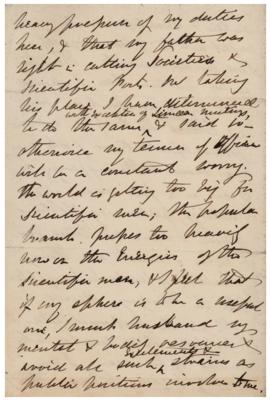 heavy pressure of my duties
here, & that my father was
right in cutting Societies &
Scientific Parties. On taking
his place I have determined
with exception of Linnean meetings,
to do the same & said so
otherwise my tenure of Office
will be a constant worry.
the world is getting too big for
Scientific men; the popular
branch presses too heavily
now on the Energies of the
Scientific man, & I feel that
if my sphere is to be a useful
one, I must husband my
mental & bodily resources &
excitements &
avoid all such strains as
public positions involve to me.